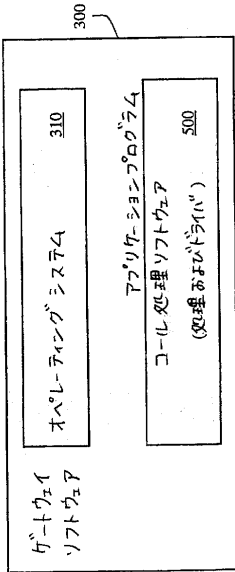 300
ゲートウェイ
ソフトウェア
オペレーティングシステム
310
アプリケーションプログラム
コール処理ソフトウェア
(処理およびドライバ)
500